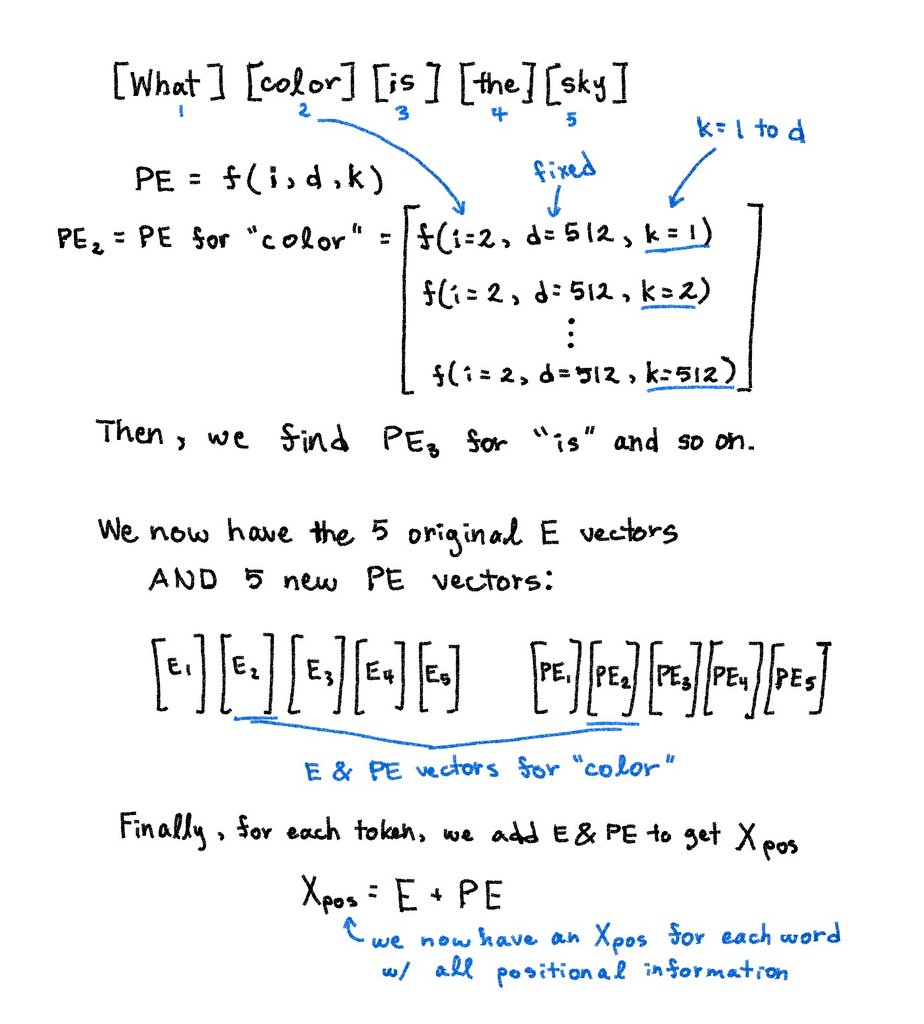 [What] [color] [is] [the] [sky]
1 2 3 4 5
k=1 to d
PE = f(i,d,k)
fixed
PE₂ = PE for "color" = [f(i=2, d=512, k=1)
f(i=2, d=512, k=2)
⋮
f(i=2, d=512, k=512)]
Then, we find PE₃ for "is" and so on.
We now have the 5 original E vectors
AND 5 new PE vectors:
[E₁] [E₂] [E₃] [E₄] [E₅] [PE₁] [PE₂] [PE₃] [PE₄] [PE₅]
E & PE vectors for "color"
Finally, for each token, we add E & PE to get Xpos
Xpos = E + PE
we now have an Xpos for each word
w/ all positional information